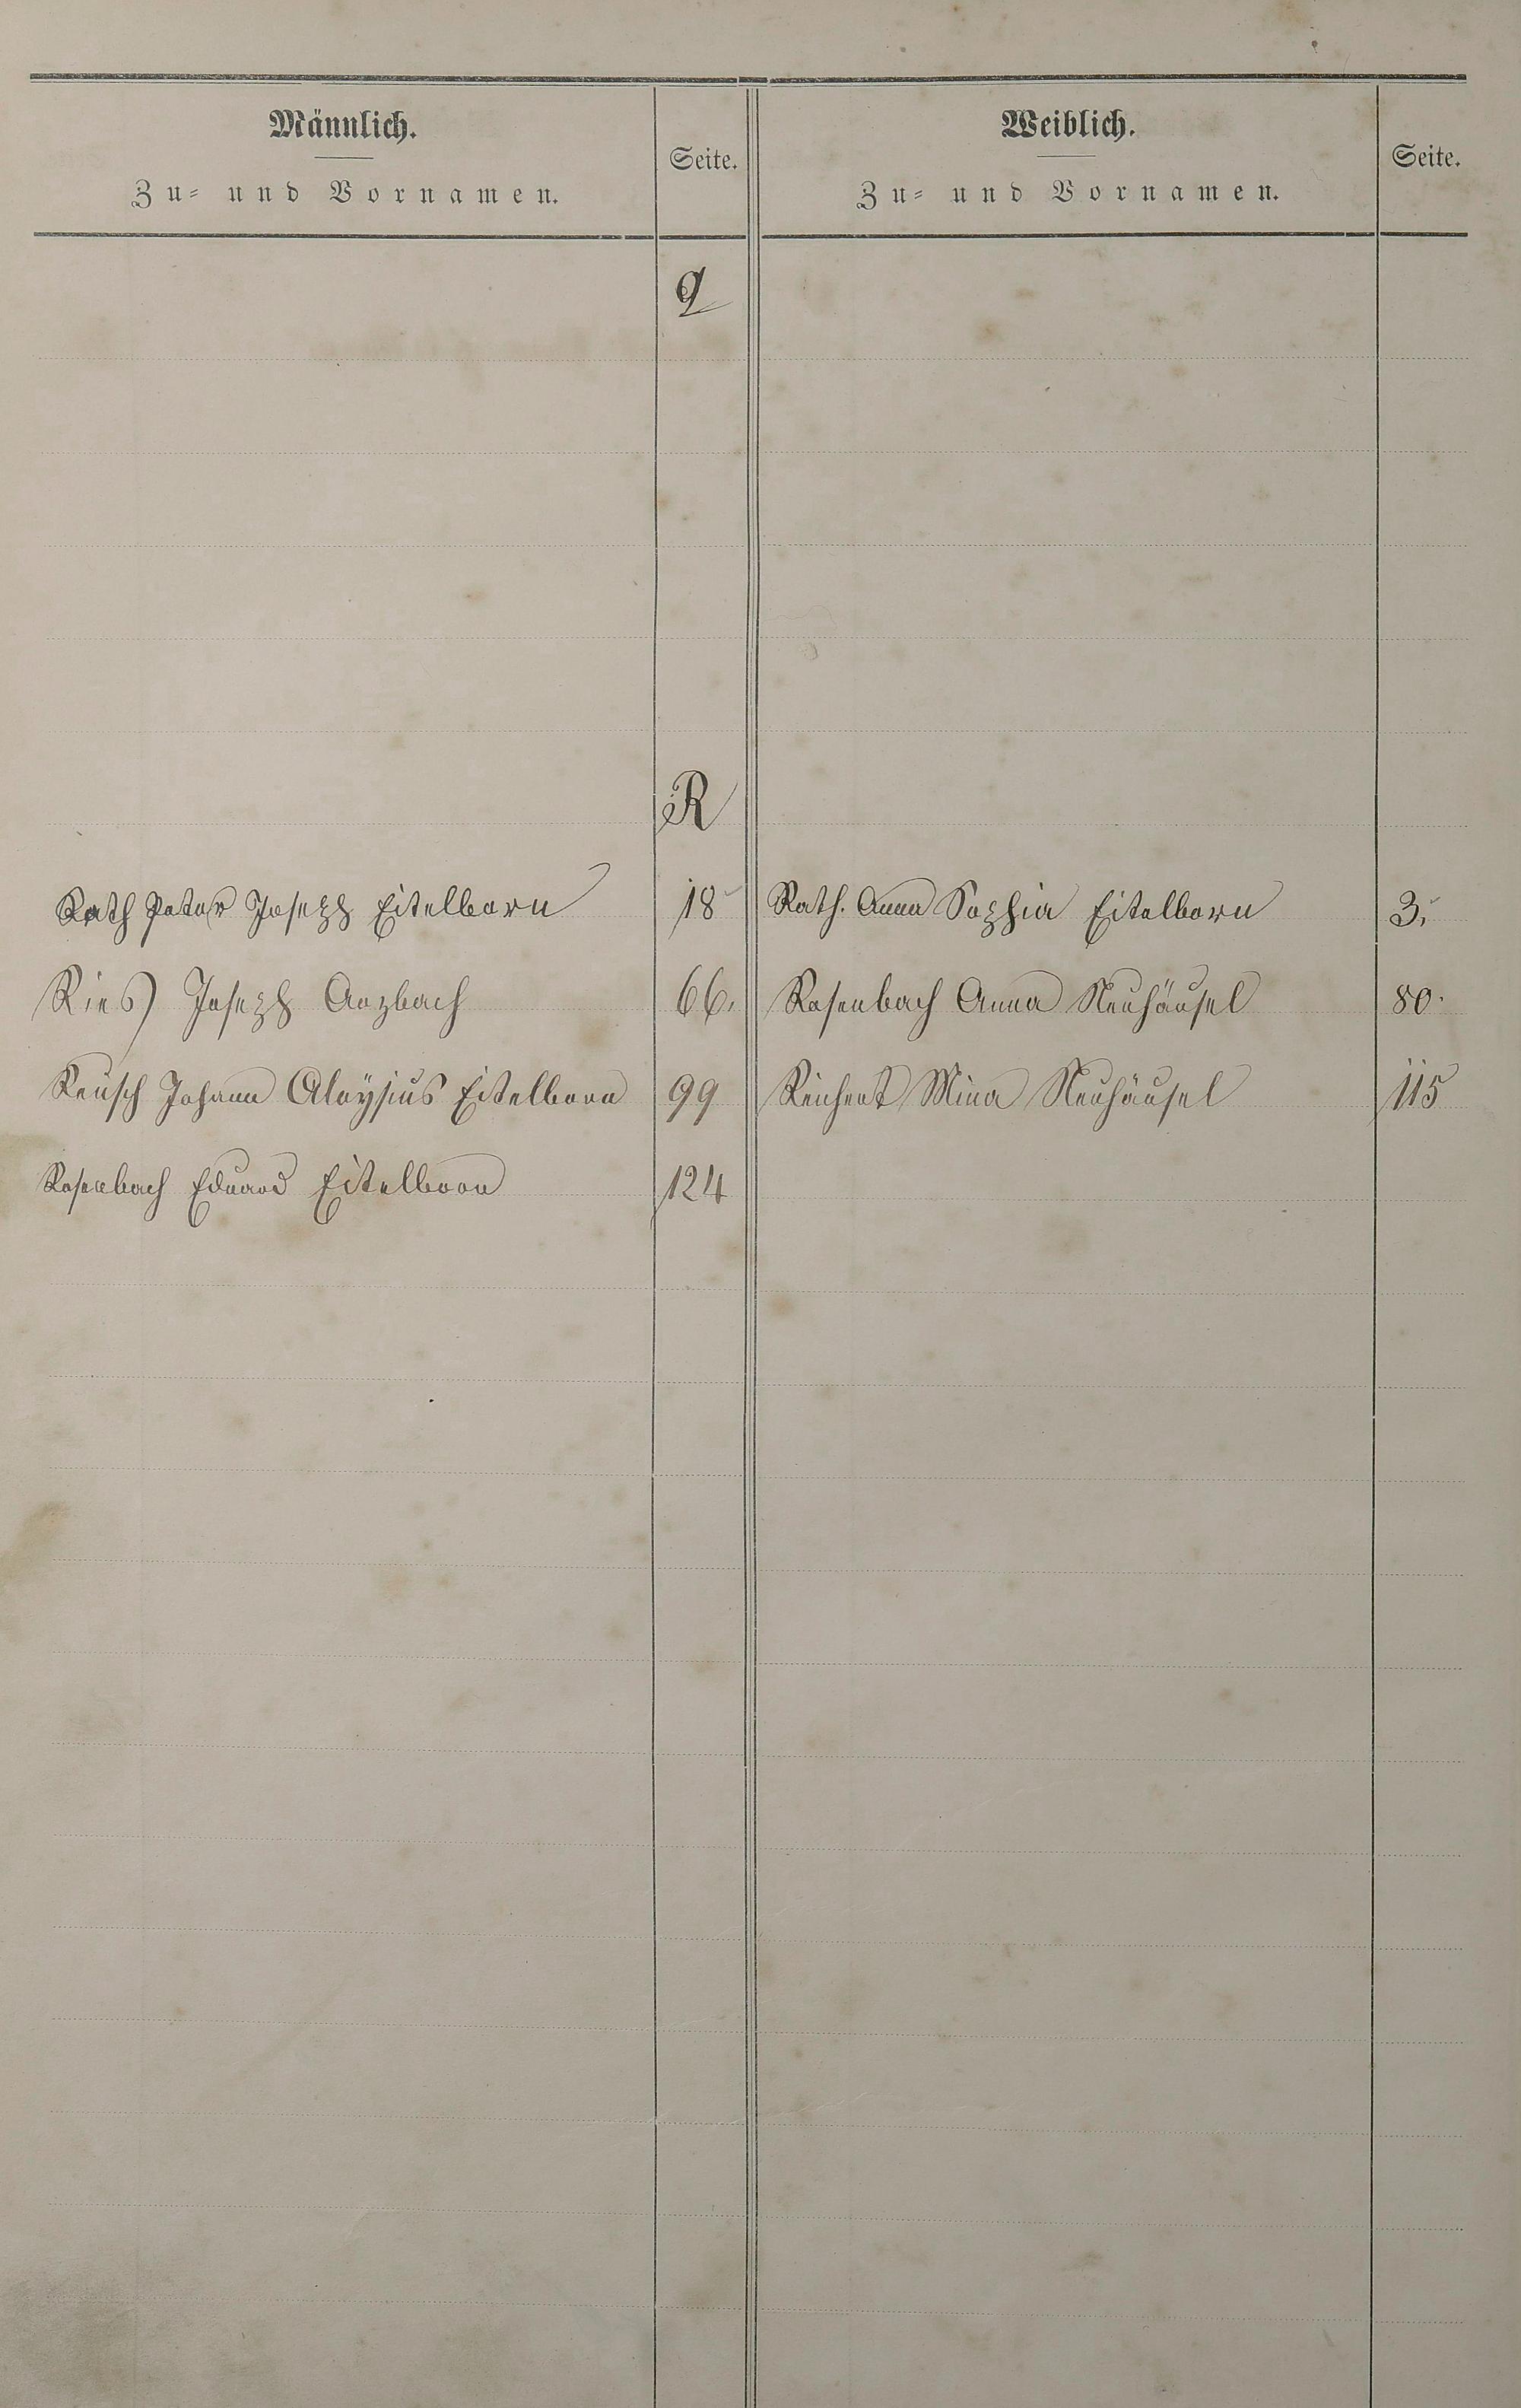 Männlich.
Zu- und Vornamen.
Seite.
Weiblich.
Zu- und Vornamen.
Seite.
Q
R
Rath Peter Joseph Eitelborn 18
Rath. Anna Sophia Eitelborn 3.
Ries Joseph Arzbach 66.
Rosenbach Anna Neuhäusel 80.
Reusch Johann Aloysius Eitelborn 99
Reichert Mina Neuhäusel 115
Rosenbach Eduard Eitelborn 124